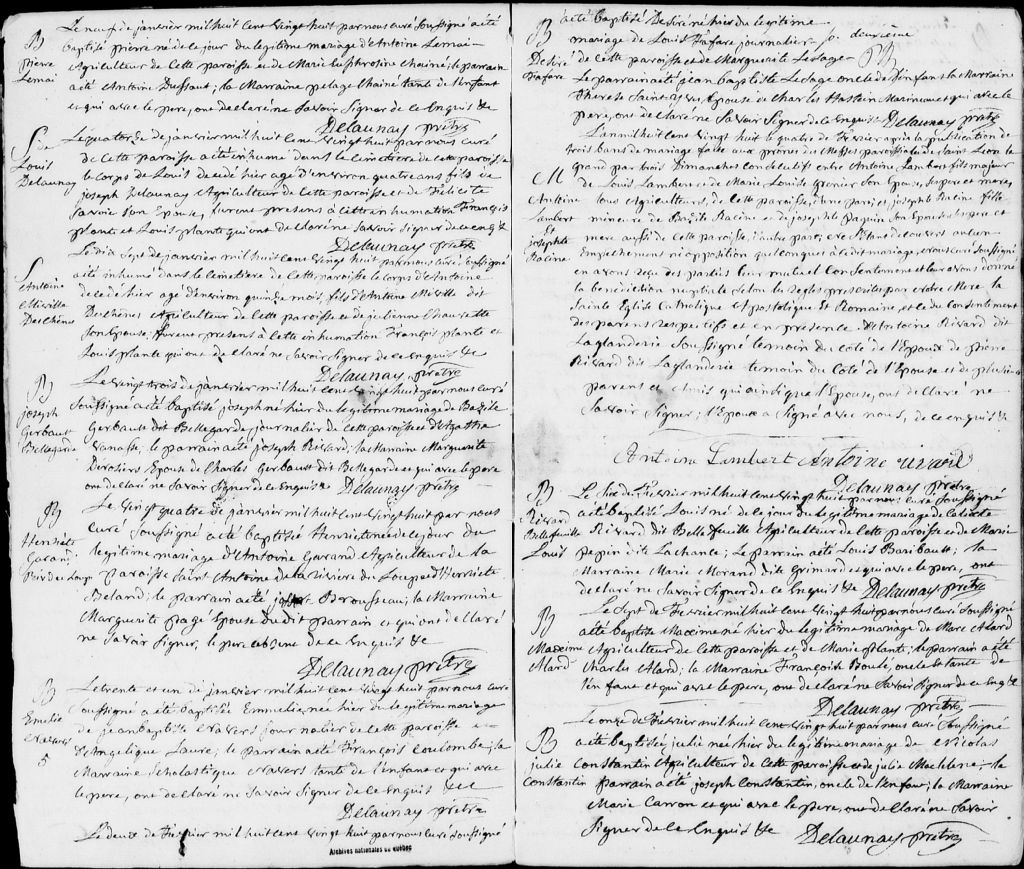 B
pierre
Lemai
Le neuf de janvier mil huit cent vingt huit par nous curé soussigné a été
baptisé pierre né de le jour du legitime mariage d'Antoine Lemai
Agriculteur de Cette paroisse et de Marie Euphrosine Chainé; le parrain
a été Antoine Dufsaut; la Marraine pelage Chainé tante de l'enfant
et qui avec le pere, ont declaré ne Savoir Signer de ce Enquis &c
Delaunay prêtre
S
Louis
Delaunay
Le quatorze de janvier mil huit cent vingt huit par nous curé
de Cette paroisse a été inhumé dans le Cimetiere de Cette paroisse
le corps de Louis decedé hier agé d'environ quatre ans fils de
joseph Delaunay Agriculteur de Cette paroisse et de Felicité
Savoie Son Epouse, furent presens à Cette inhumation François
plant et Louis plante qui ont declaré ne Savoir Signer de ce enquis &c
Delaunay prêtre
S
Antoine
Miville
Dechêne
Le dix Sept de janvier mil huit cent vingt huit par nous curé Soussigné
a été inhumé dans le Cimetiere de Cette paroisse le corps d'Antoine
decedé hier agé d'environ quinze mois, fils d'Antoine Miville dit
Dechênes Agriculteur de Cette paroisse et de julienne Chaurette
Son Epouse; furent presens à Cette inhumation François plante et
Louis plante qui ont declaré ne Savoir Signer de ce Enquis &c
Delaunay prêtre
B
joseph
Gerbaut
Bellegarde
Le vingt trois de janvier mil huit cent vingt huit par nous curé
Soussigné a été baptisé joseph né hier du legitime mariage de Bazile
Gerbaut dit Bellegarde, journalier de cette paroisse et d'Agathe
Vanasse; le parrain a été joseph Rivard; la Marraine Marguerite
Derosiers Epouse de Charles Gerbaut dit Bellegarde et qui avec le pere
ont declaré ne Savoir Signer de ce Enquis &c Delaunay prêtre
B
Henriette
Garant
Riv. du Loup
Le vingt quatre de janvier mil huit cent vingt huit par nous
curé Soussigné a été baptisée Henriette née le jour du
legitime mariage d'Antoine Garand Agriculteur de la
paroisse Saint Antoine de la Riviere du Loup et d'Henriette
Beland; le parrain a été Brousseau; la Marraine
Marguerite page Epouse du dit parrain et qui ont declaré
ne Savoir Signer, le pere absent de ce Enquis &c
Delaunay prêtre
B
Emelie
Navers
5
Le trente et un de janvier mil huit cent vingt huit par nous curé
Soussigné a été baptisée Emmelie, née hier du legitime mariage
de jean baptiste Navers journalier de cette paroisse et
d'Angelique Laure; le parrain a été François Coulombe; la
Marraine Scholastique Navers tante de l'enfant et qui avec
le pere, ont declaré ne Savoir Signer de ce Enquis &c
Delaunay prêtre
Le deux de Fevrier mil huit cent vingt huit par nous curé Soussigné
Archives nationales du Québec
B
Desiré
Lafare
a été baptisé Desiré né hier du legitime
mariage de Louis journalier
de cette paroisse et de Marguerite LeSage
p. deuxième
Le parrain a été jean baptiste Le Sage oncle de l'enfant la Marraine
Therese Saint Epouse de Charles et qui avec le
pere, ont declaré ne Savoir Signer de ce Enquis Delaunay prêtre
M
Antoine
Lambert
Et
josephte
Racine
L'an mil huit cent vingt huit le quatre de Fevrier après la publication de
trois bans de mariage faite aux prones des Messes paroissiales de Saint Leon le
grand par trois Dimanches consecutifs entre Antoine Lambert fils majeur
de Louis Lambert et de Marie Louise Grenier Son Epouse, Ses pere et mere,
tous Agriculteurs, de cette paroisse, d'une part; et josephte Racine fille
mineure de Bazile Racine et de josephte Papuin Son Epouse Ses pere et
mere aussi de cette paroisse, l'autre part; ne S'étant decouvert aucun
Empechement ni opposition quelconques à ce dit mariage, nous curé Soussigné,
en avons reçu des parties leur mutuel consentement et leur avons donné
la benediction nuptiale Selon les regles prescrites par notre Mere la
Sainte Eglise Catholique Apostolique Et Romaine, et ce du consentement
des parens respectifs et en présence d'Antoine Rivard dit
Laglanderie Soussigné temoin du coté de l'Epoux de pierre
Rivard dit Laglanderie temoin du coté de l'Epouse et de plusieurs
parens et Amis qui ainsi que l'Epouse, ont declaré ne
Savoir Signer; l'Epoux a Signé avec nous, de ce enquis &c
Antoine Lambert Antoine
Delaunay prêtre
B
Rivard
Bellefeuille
Louis
Le Six de Fevrier mil huit cent vingt huit par nous curé Soussigné
a été baptisé Louis né de le jour du legitime mariage de
Rivard dit Bellefeuille Agriculteur de cette paroisse et de Marie
Pepin dit Lachance; Le parrain a été Louis Baribault; la
Marraine Marie Morand dite Grimard et qui avec le pere, ont
declaré ne Savoir Signer de ce Enquis &c Delaunay prêtre
B
Maxime
Alard
Le Sept de Fevrier mil huit cent vingt huit par nous curé Soussigné
a été baptisé Maxime né hier du legitime mariage de Marc Alard
Agriculteur de Cette paroisse et de Marie plante; le parrain a été
Charles Alard; la Marraine Françoise Boulé, oncle et tante de
l'enfant et qui avec le pere, ont declaré ne Savoir Signer de ce Enquis &c
Delaunay prêtre
B
julie
Constantin
Le onze de Fevrier mil huit cent vingt huit par nous curé Soussigné
a été baptisée julie née hier du legitime mariage de Nicolas
Constantin Agriculteur de Cette paroisse et de julie; le
parrain a été joseph Constantin, oncle de l'enfant, la Marraine
Marie Carron et qui avec le pere, ont declaré ne Savoir
Signer de ce Enquis &c Delaunay prêtre